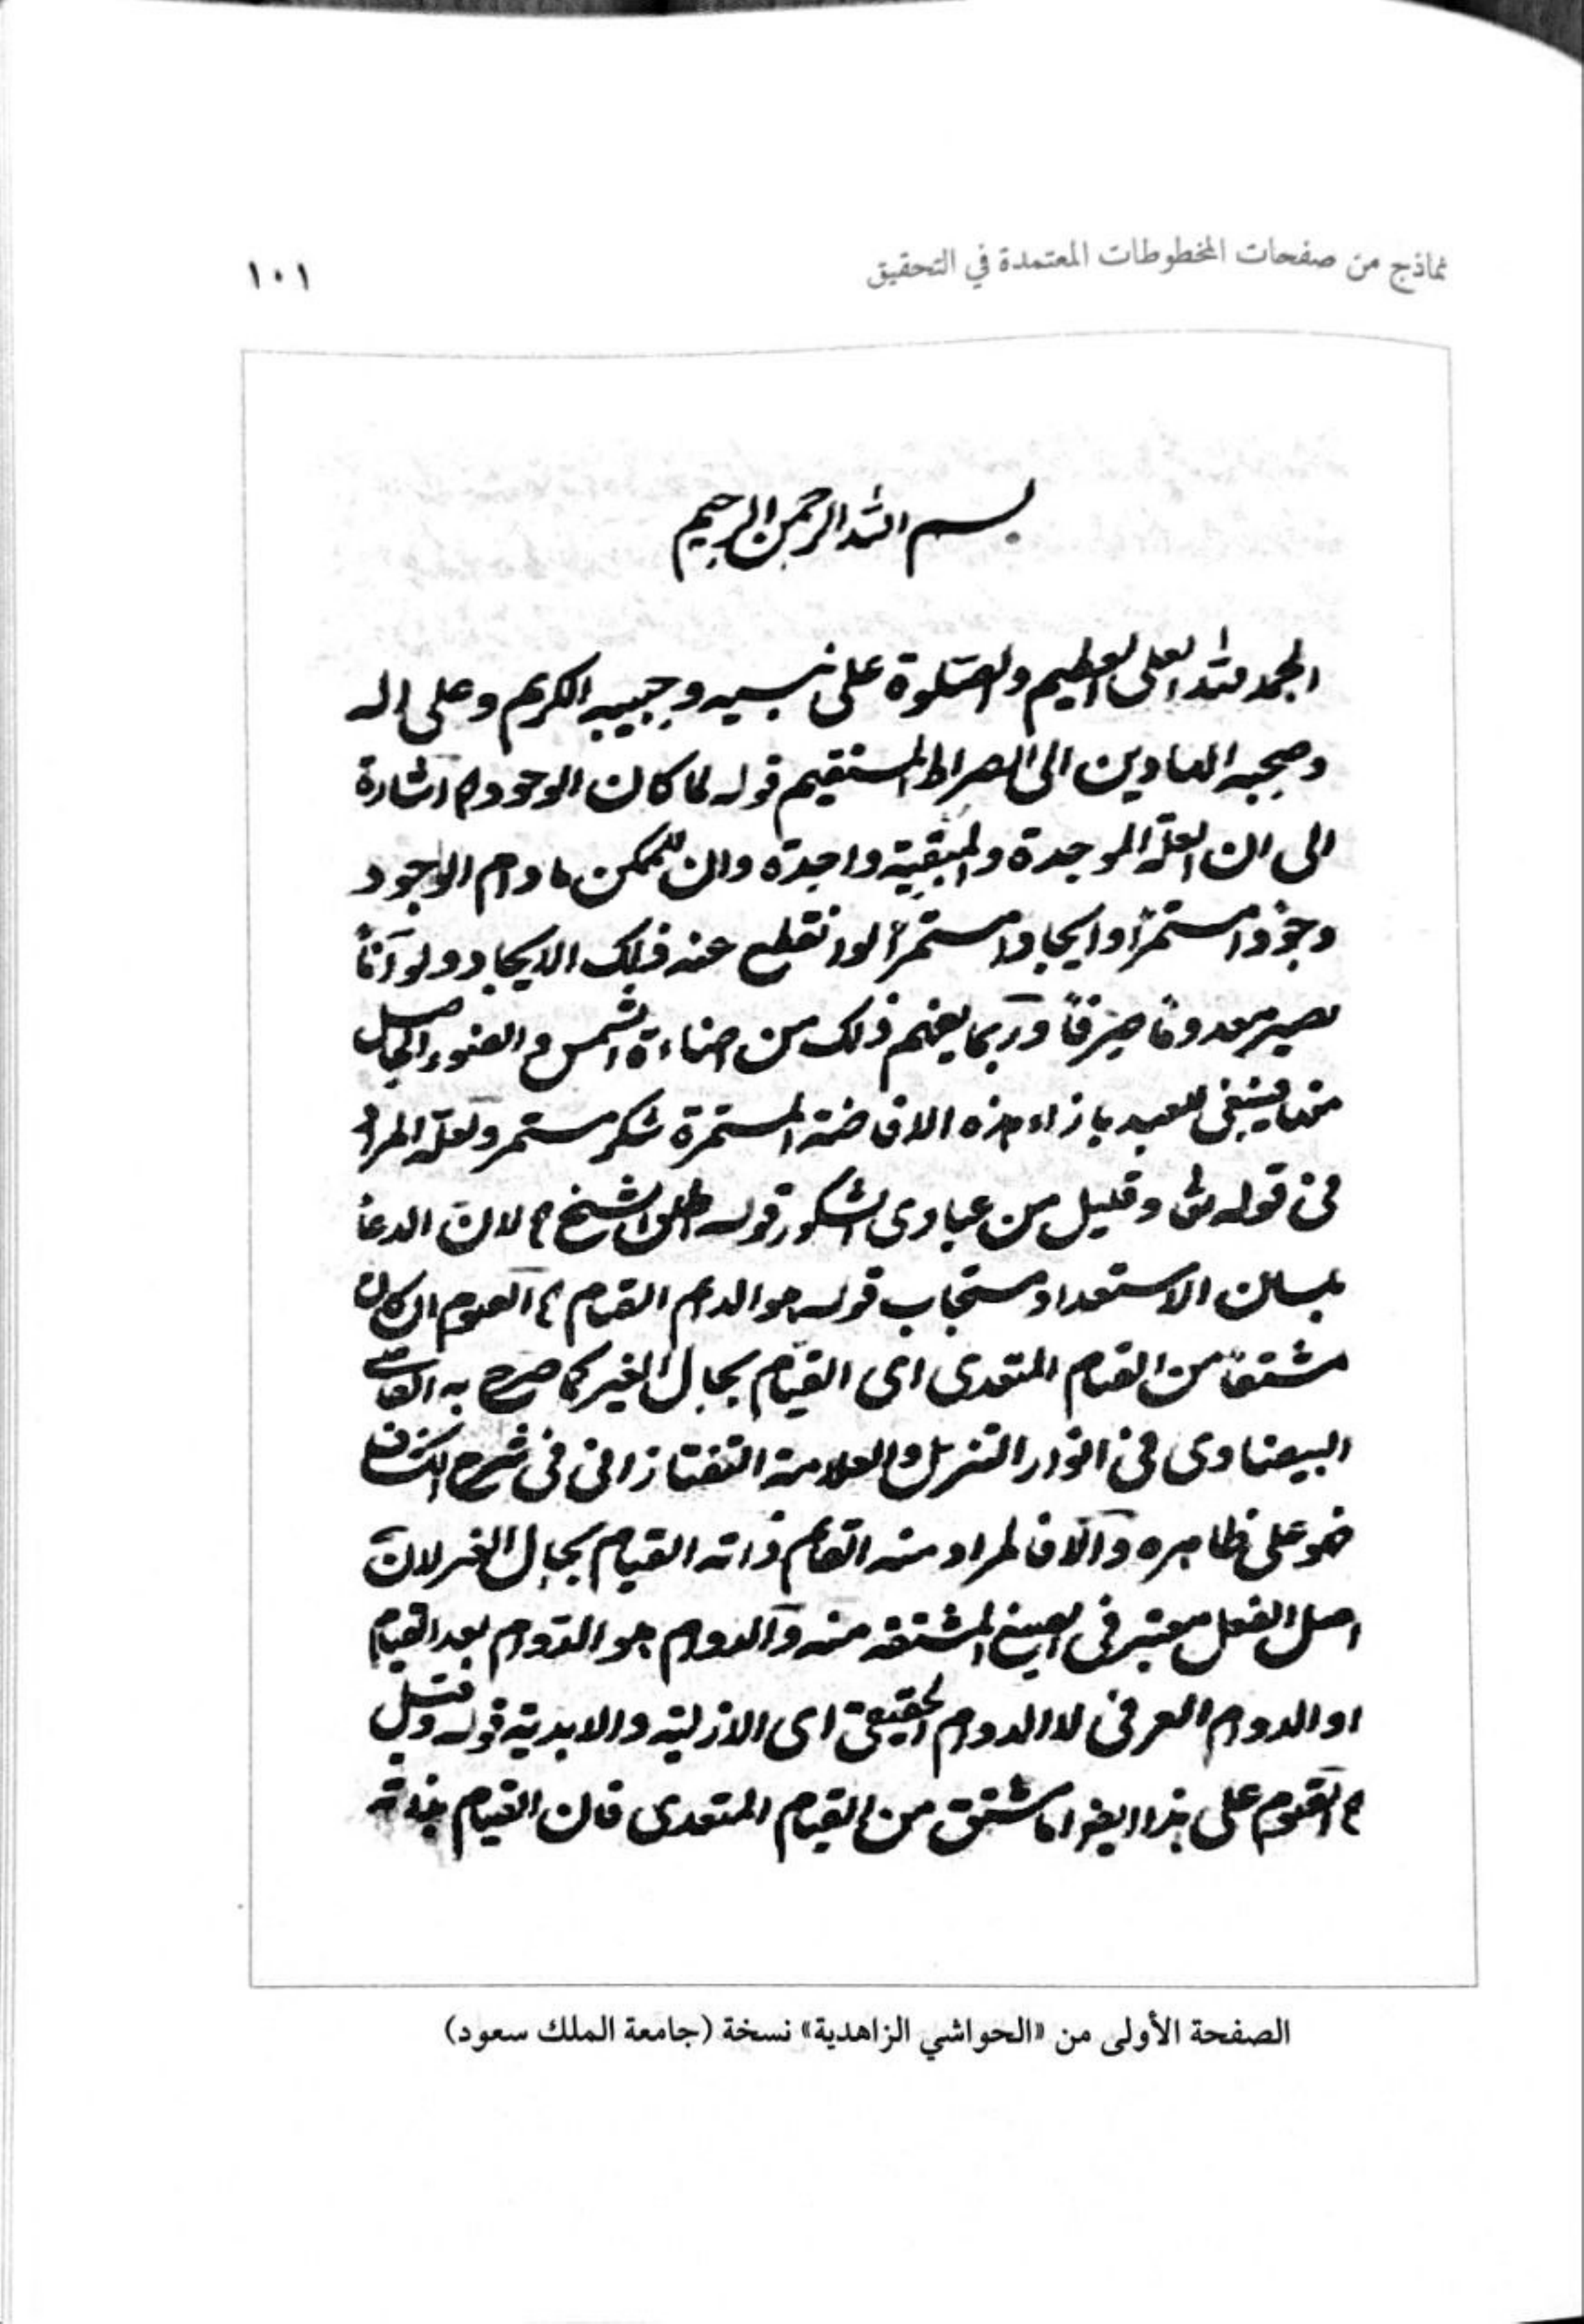 نماذج من صفحات المخطوطات المعتمدة في التحقيق
١٠١
بسم الله الرحمن الرحيم
الحمد لله العلى العظيم والصلوة على نبيه وحبيبه الكريم وعلى اله
وصحبه الهادين الى الصراط المستقيم قوله لما كان الوجود اه اشارة
الى ان العلة الموجدة والمبقية واحدة وان للممكن ما دام الوجود
وجودا مستمراً وايجادا مستمراً لو انقطع عنه ذلك الايجاد ولو آناً
يصير معدوماً صرفاً وربما يفهم ذلك من اضاءة الشمس والضوء الحاصل
منها فينبغى للعبد بازاء هذه الافاضة المستمرة شكر مستمر ولعله المراد
فى قوله تعا وقليل من عبادى الشكور قوله الشيخ اه لان الدعا
بلسان الاستعداد مستجاب قوله هو الدائم القيام اه القيوم ان كان
مشتقاً من القيام المتعدى اى القيام بحال الغير كما صرح به القاضى
البيضاوى فى انوار التنزيل والعلامة التفتازانى فى شرح الكشاف
فهو على ظاهره والا فالمراد منه القائم ذاته القيام بحال الغير لان
اصل الفعل معتبر فى الصيغ المشتقه منه والدوام هو الدوام بعد القيام
او الدوام العرفى لا الدوام الحقيقى اى الازلية والابدية قوله وقيل
اه القيوم على هذا ايضا مشتق من القيام المتعدى فان القيام بذاته
الصفحة الأولى من «الحواشي الزاهدية» نسخة (جامعة الملك سعود)